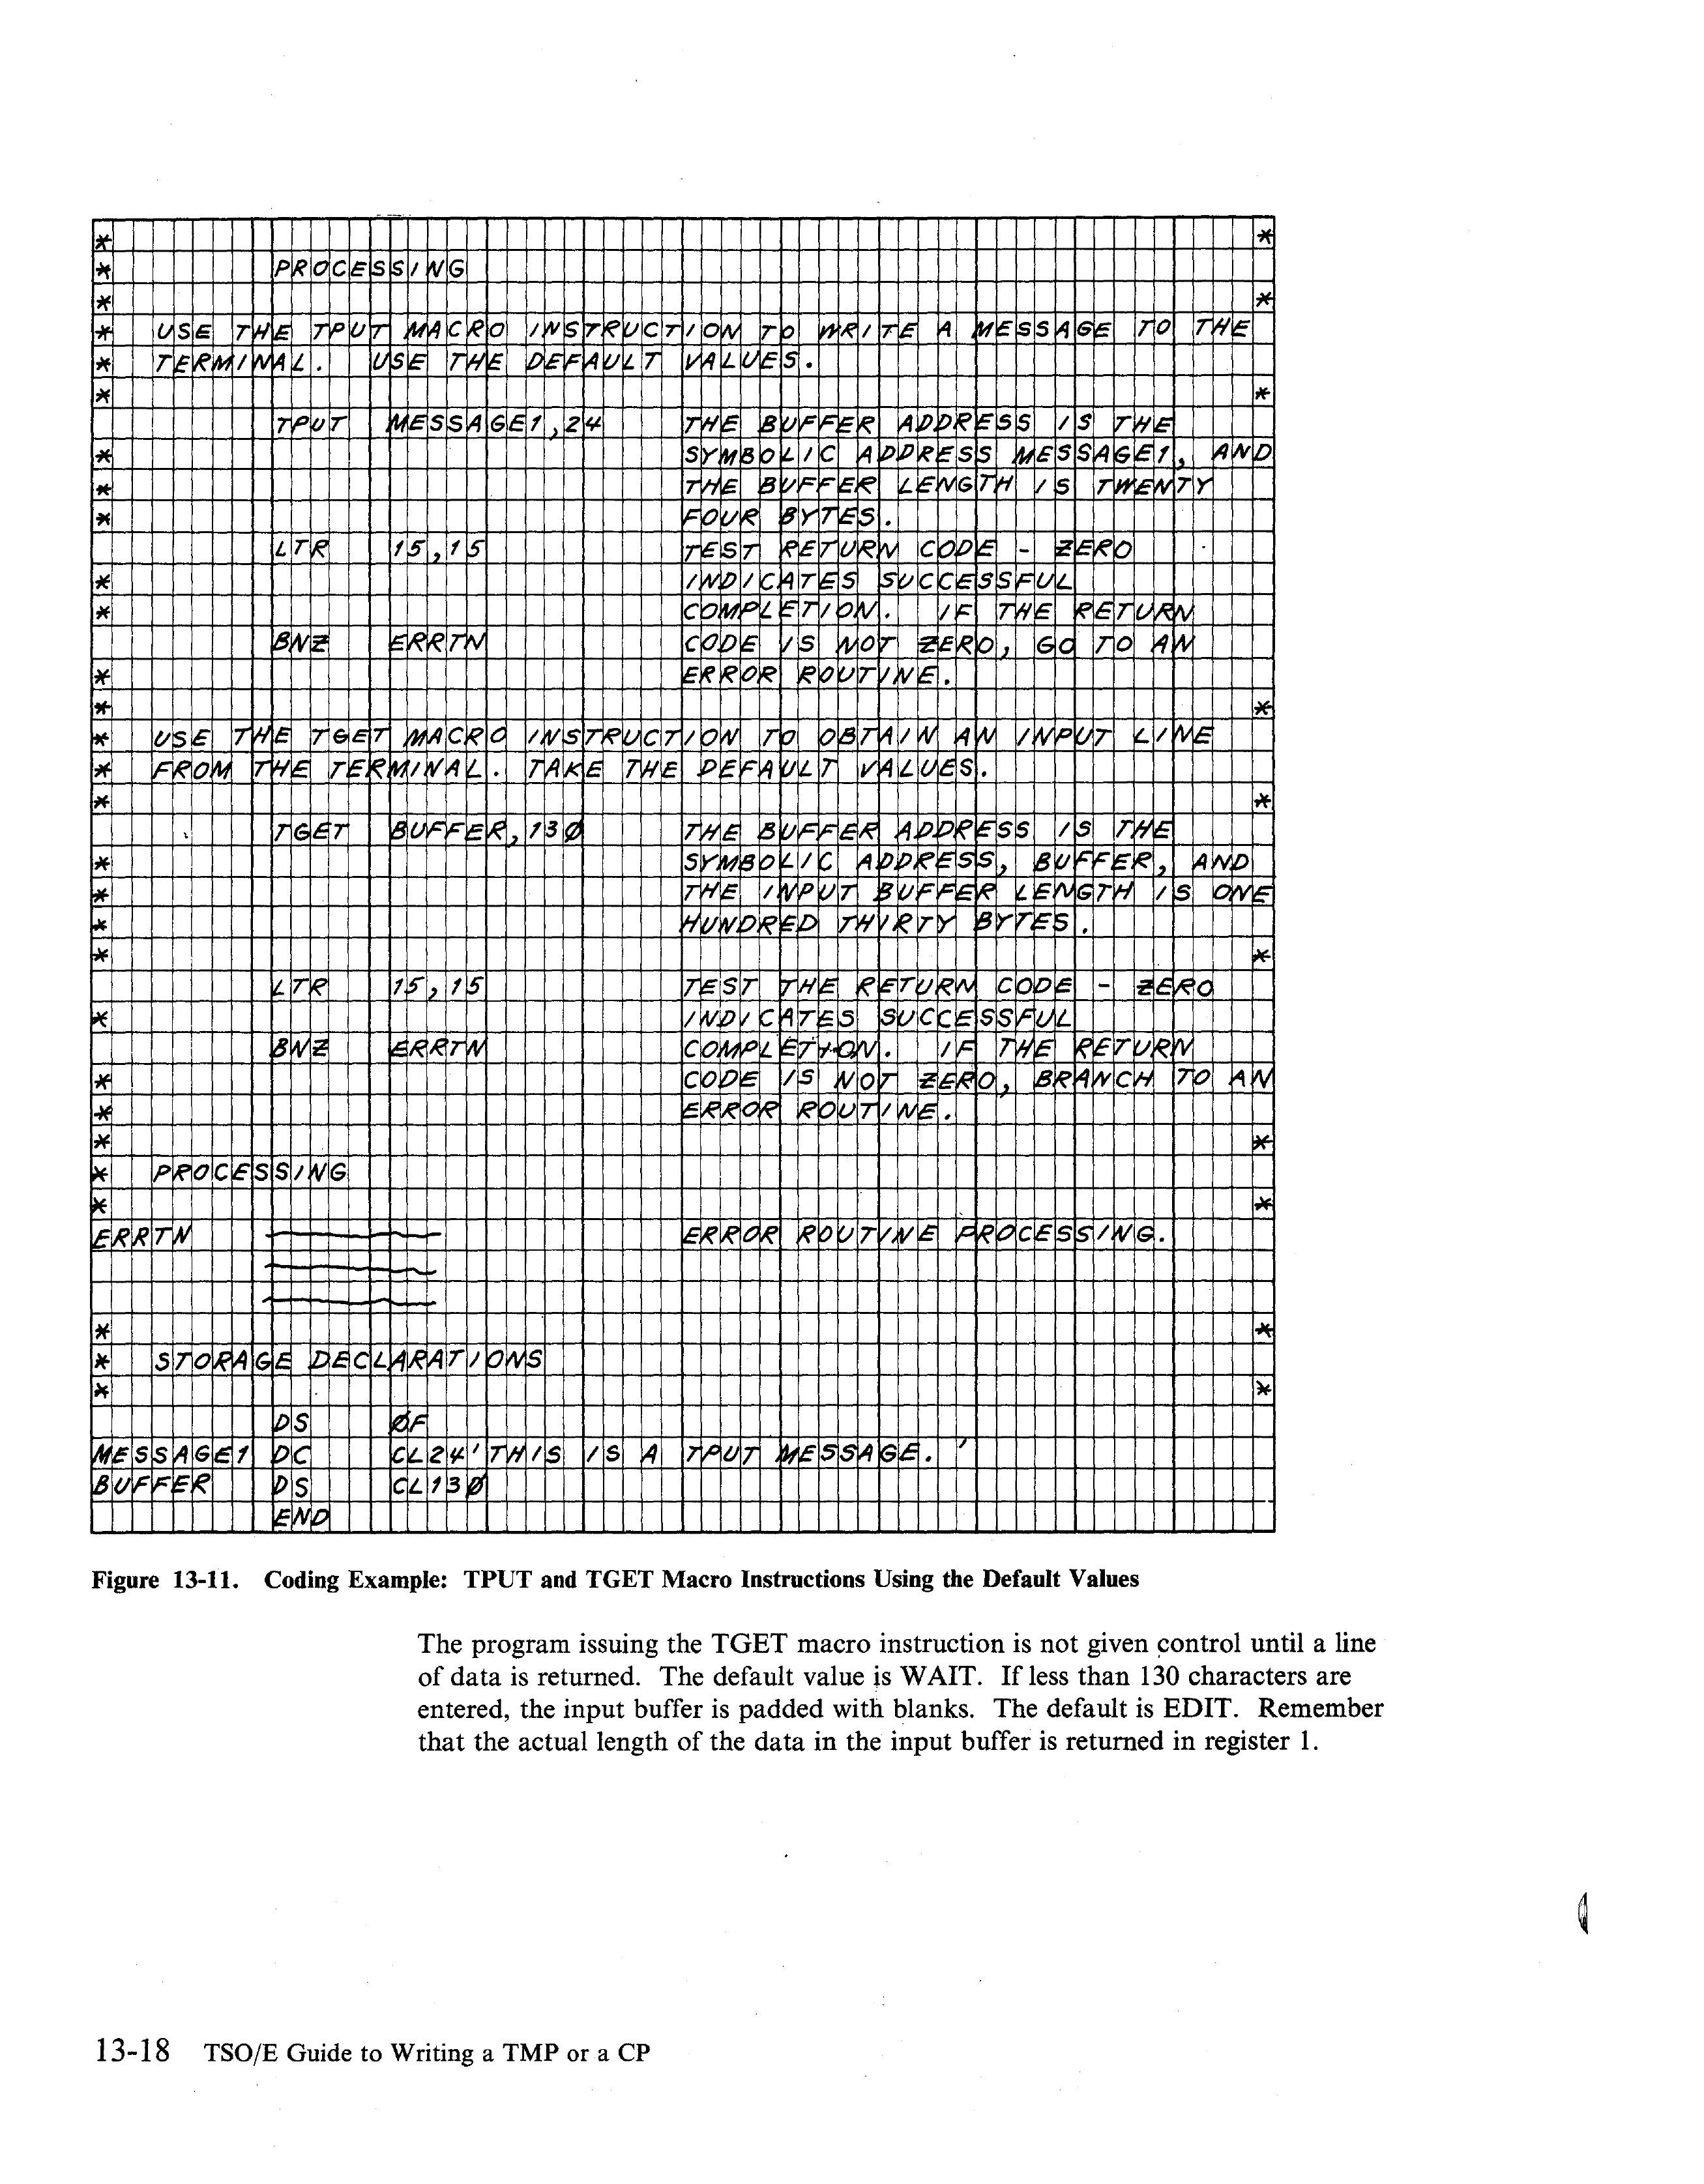 * *
* PROCESSING
* *
* USE THE TPUT MACRO INSTRUCTION TO WRITE A MESSAGE TO THE
* TERMINAL. USE THE DEFAULT VALUES.
* *
TPUT MESSAGE1,24 THE BUFFER ADDRESS IS THE
* SYMBOLIC ADDRESS MESSAGE1, AND
* THE BUFFER LENGTH IS TWENTY
* FOUR BYTES.
LTR 15,15 TEST RETURN CODE - ZERO
* INDICATES SUCCESSFUL
* COMPLETION. IF THE RETURN
BNZ ERRTN CODE IS NOT ZERO, GO TO AN
* ERROR ROUTINE.
* *
* USE THE TGET MACRO INSTRUCTION TO OBTAIN AN INPUT LINE
* FROM THE TERMINAL. TAKE THE DEFAULT VALUES.
* *
TGET BUFFER,13Ø THE BUFFER ADDRESS IS THE
* SYMBOLIC ADDRESS, BUFFER, AND
* THE INPUT BUFFER LENGTH IS ONE
* HUNDRED THIRTY BYTES.
* *
LTR 15,15 TEST THE RETURN CODE - ZERO
* INDICATES SUCCESSFUL
BNZ ERRTN COMPLETION. IF THE RETURN
* CODE IS NOT ZERO, BRANCH TO AN
* ERROR ROUTINE.
* *
* PROCESSING
* *
ERRTN ERROR ROUTINE PROCESSING.
* *
* STORAGE DECLARATIONS
* *
DS ØF
MESSAGE1 DC CL24'THIS IS A TPUT MESSAGE. '
BUFFER DS CL13Ø
END
Figure 13-11. Coding Example: TPUT and TGET Macro Instructions Using the Default Values
The program issuing the TGET macro instruction is not given control until a line
of data is returned. The default value is WAIT. If less than 130 characters are
entered, the input buffer is padded with blanks. The default is EDIT. Remember
that the actual length of the data in the input buffer is returned in register 1.
13-18 TSO/E Guide to Writing a TMP or a CP